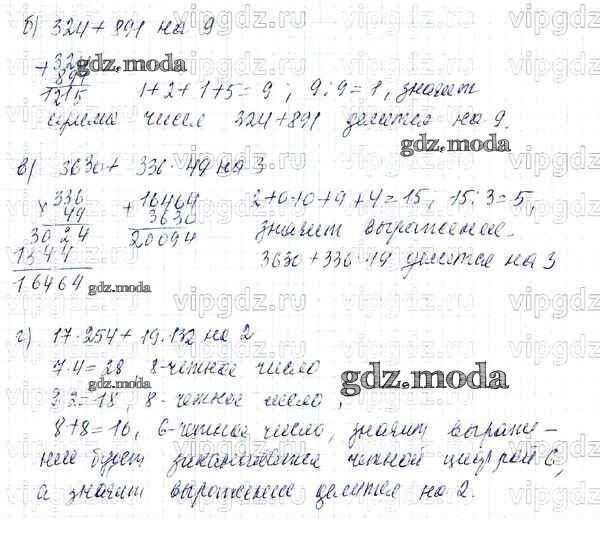 б) 324 + 891 на 9
+ 324
891
1215
1+2+1+5=9; 9:9=1, значит
сумма чисел 324+891 делится на 9.
в) 3630 + 336·49 на 3
× 336
49
3024
1344
16464
+ 16464
3630
20094
2+0+0+9+4=15; 15:3=5,
значит выражение
3630+336·49 делится на 3
г) 17·254 + 19·132 на 2
7·4=28, 8-четное число
9·2=18, 8-четное число,
8+8=16, 6-четное число, значит выраже-
ние будет заканчиваться четной цифрой 6,
а значит выражение делится на 2.
gdz.moda
gdz.moda
gdz.moda
gdz.moda
gdz.moda
vipgdz.ru